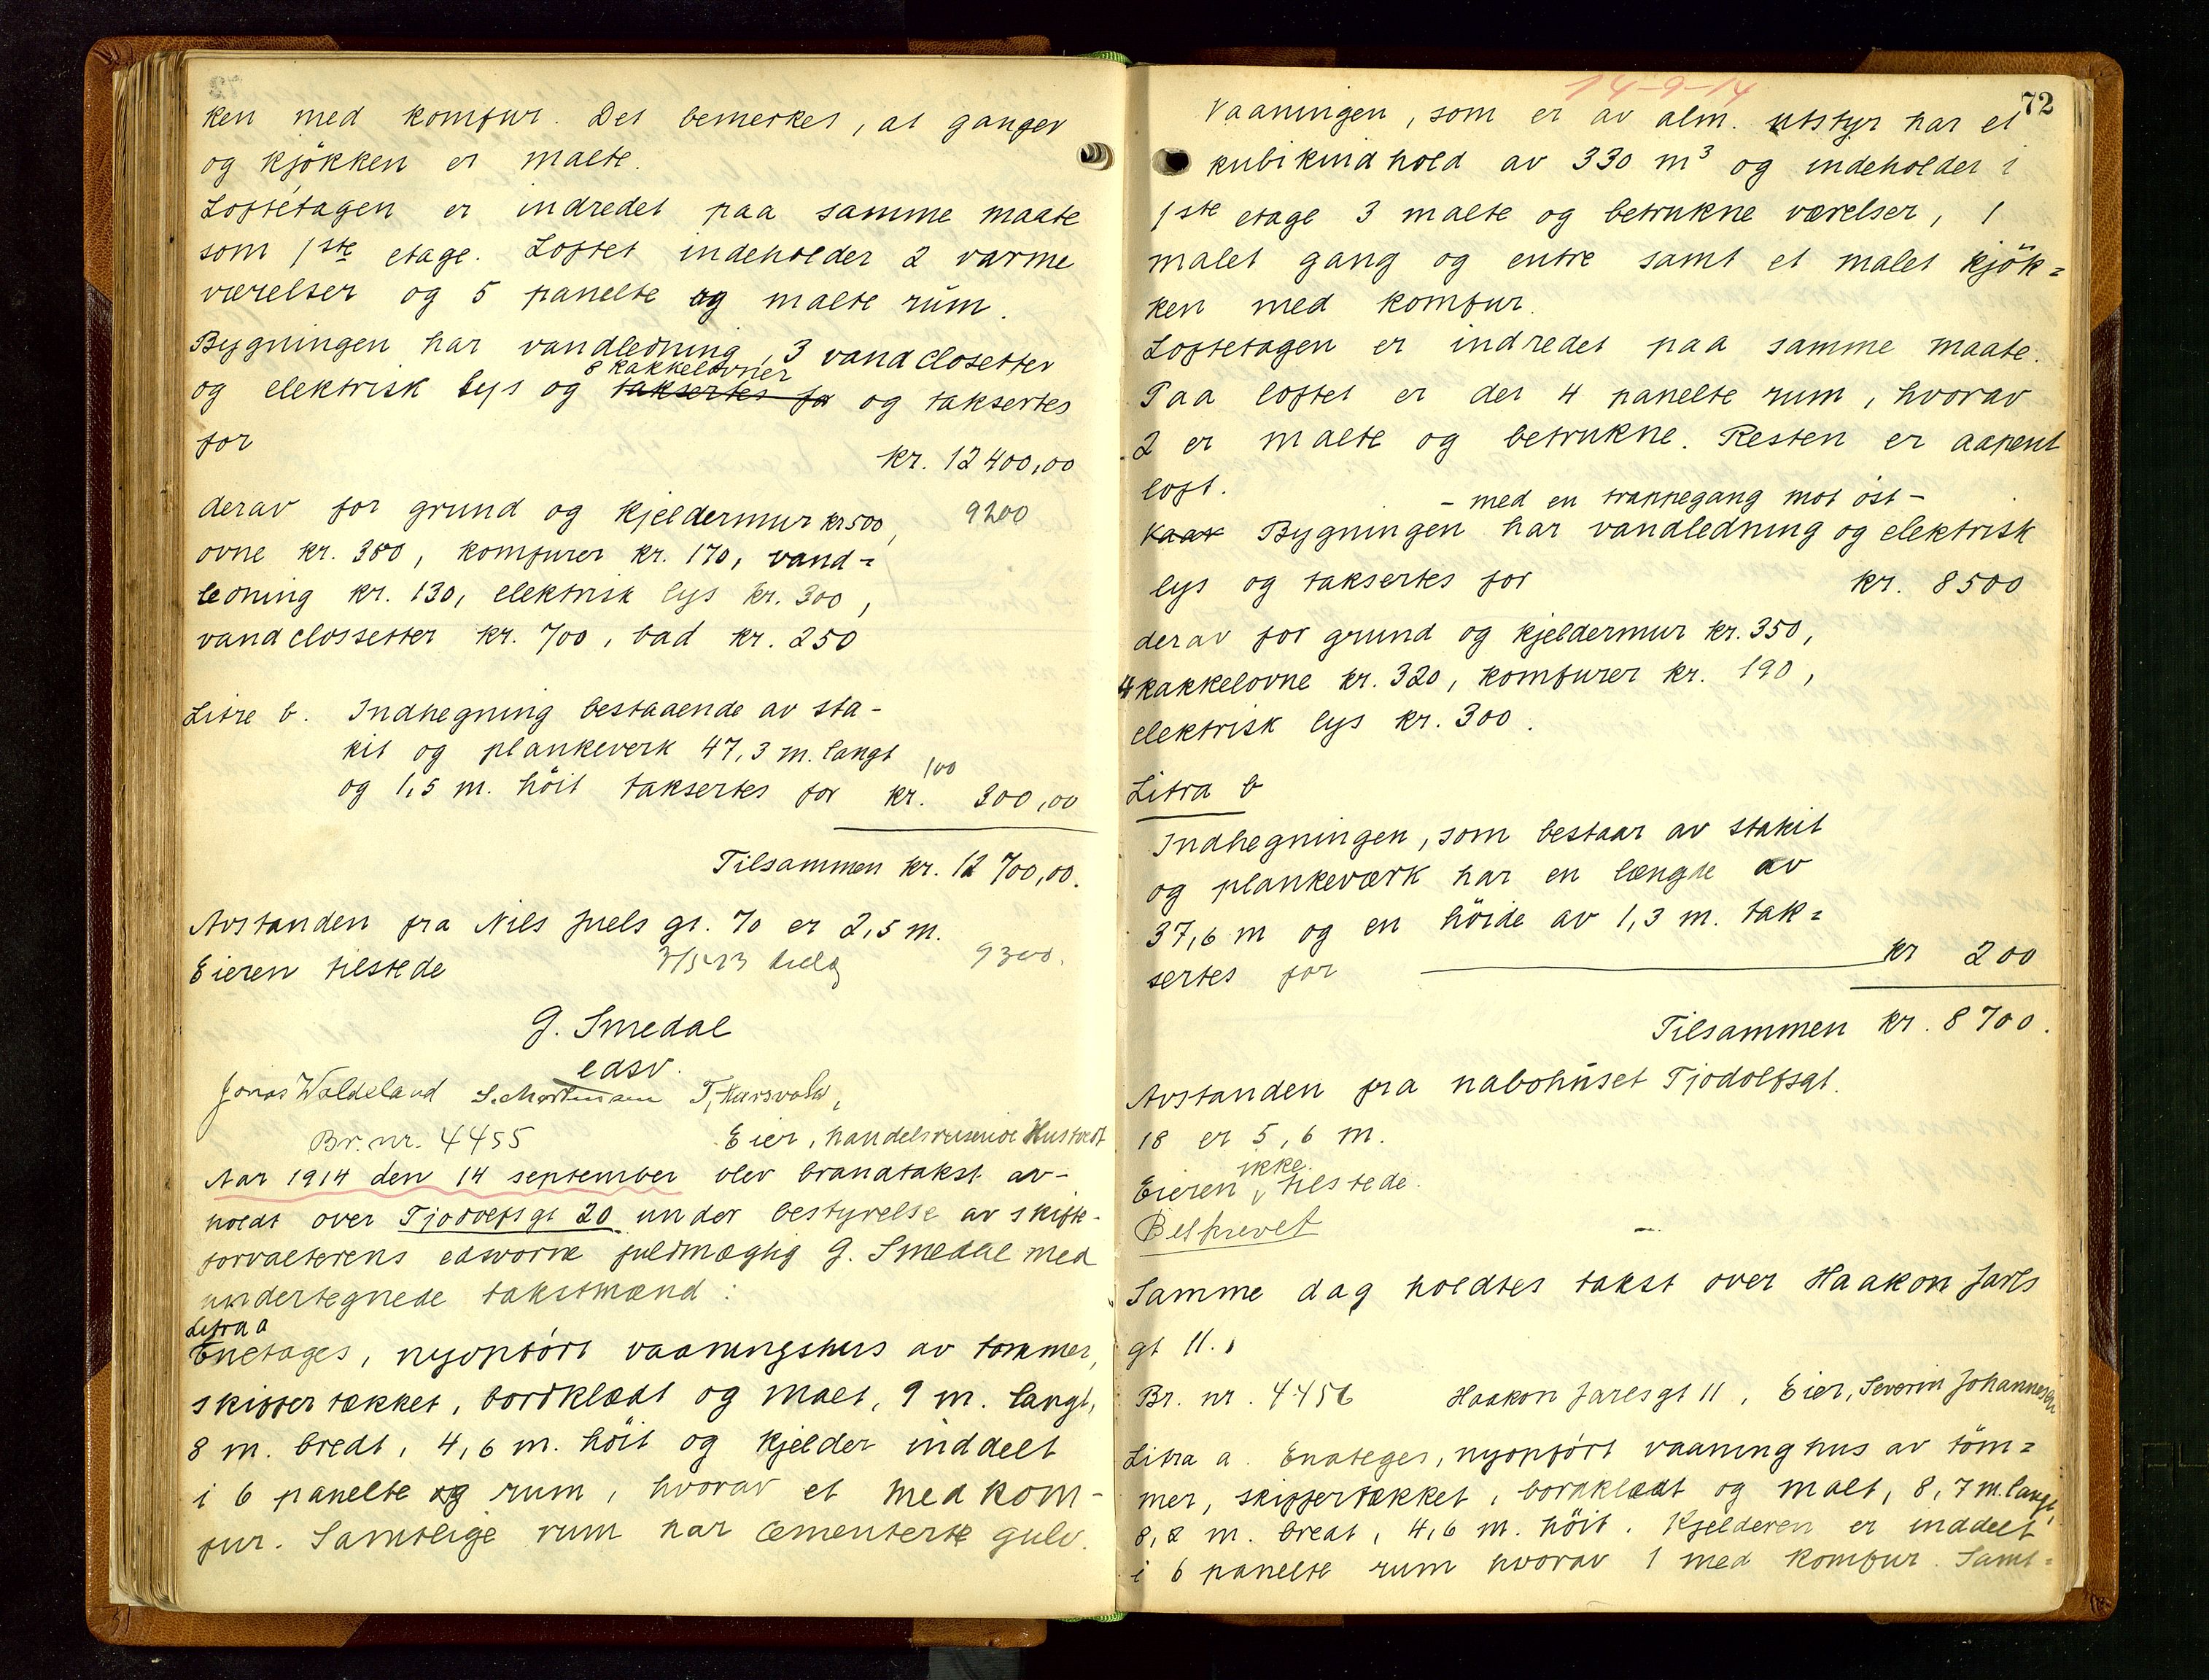 ken med komfur. Det bemerkes, at ganger
og kjökken er malte.
Loftétagen er indredet paa samme maate
som 1ste etage. Loftet indeholder 2 varme
værelser og 5 panelte og malte rúm.
Bygningen har vandledning, 3 vandclosetter
8 kakkelovner
og elektrisk lys og taksertes for og taksertes
for
kr. 12400,00
derav for grund og kjeldermur kr 500, 9200
ovne kr. 380, komfurer kr. 170, vand-
ledning kr. 130, elektrisk lys kr. 300,
vandclossetter kr. 700, bad kr. 250
Litre b. Indhegning bestaaende av sta-
kit og plankeverk 47,3 m. langt
og 1,5 m. höit taksertes for kr. 300,00
100
Tilsammen kr. 12700,00.
Avstanden fra Nils Juels gt. 70 er 2,5 m.
Eieren tilstede 9300.
G. Smedal
edsv.
Jonas Waldeland S. Mortensen
Br. nr. 4455 Eier, handelsreisende Hustvedt
Aar 1914 den 14 september blev brandtakst av-
holdt over Tjodolfsgt 20 under bestyrelse av skifte-
forvalterens edsvorne fuldmægtig G. Smedal med
undertegnede takstmænd:
Litra a
Enetages, nyopfört vaaningshus av tømmer,
skiffertækket, bordklædt og malt, 9 m. langt,
8 m. bredt, 4,6 m. höit og kjelder inddelt
i 6 panelte og rum, hvorav et med kom-
fur. Samtlige rum har cementerte gulv.
14-9-14
72
Vaaningen, som er av alm. utstyr har et
kubikindhold av 330 m³ og indeholder i
1ste etage 3 malte og betrukne værelser, 1
malet gang og entre samt et malet kjök=
ken med komfur.
Loftetagen er indredet paa samme maate.
Paa loftet er der 4 panelte rum, hvorav
2 er malte og betrukne. Resten er aapent
loft.
- med en trappegang mot öst -
Vaar Bygningen har vandledning og elektrisk
lys og taksertes for kr. 8500
derav for grund og kjeldermur kr. 350,
4 kakkelovne kr. 320, komfurer kr. 190,
elektrisk lys kr. 300.
Litra b
Indhegningen, som bestaar av stakit
og plankeværk har en længde av
37,6 m og en höide av 1,3 m. tak=
sertes for kr 200
Tilsammen kr. 8700.
Avstanden fra nabohúset Tjodolfsgt.
18 er 5,6 m.
ikke
Eieren tilstede.
Beskrevet
Samme dag holdtes takst over Haakon Jarls
gt 11.
Br. nr. 4456 Haakon Jarlsgt 11, Eier, Severin Johannesen
Litra a. Enateges, nyopfört vaaninghus av töm=
mer, skiffertækket, bordklædt og malt, 8,7 m. langt,
8,2 m. bredt, 4,6 m. höit. Kjelderen er inddelt
i 6 panelte rum hvorav 1 med komfur. Samt=